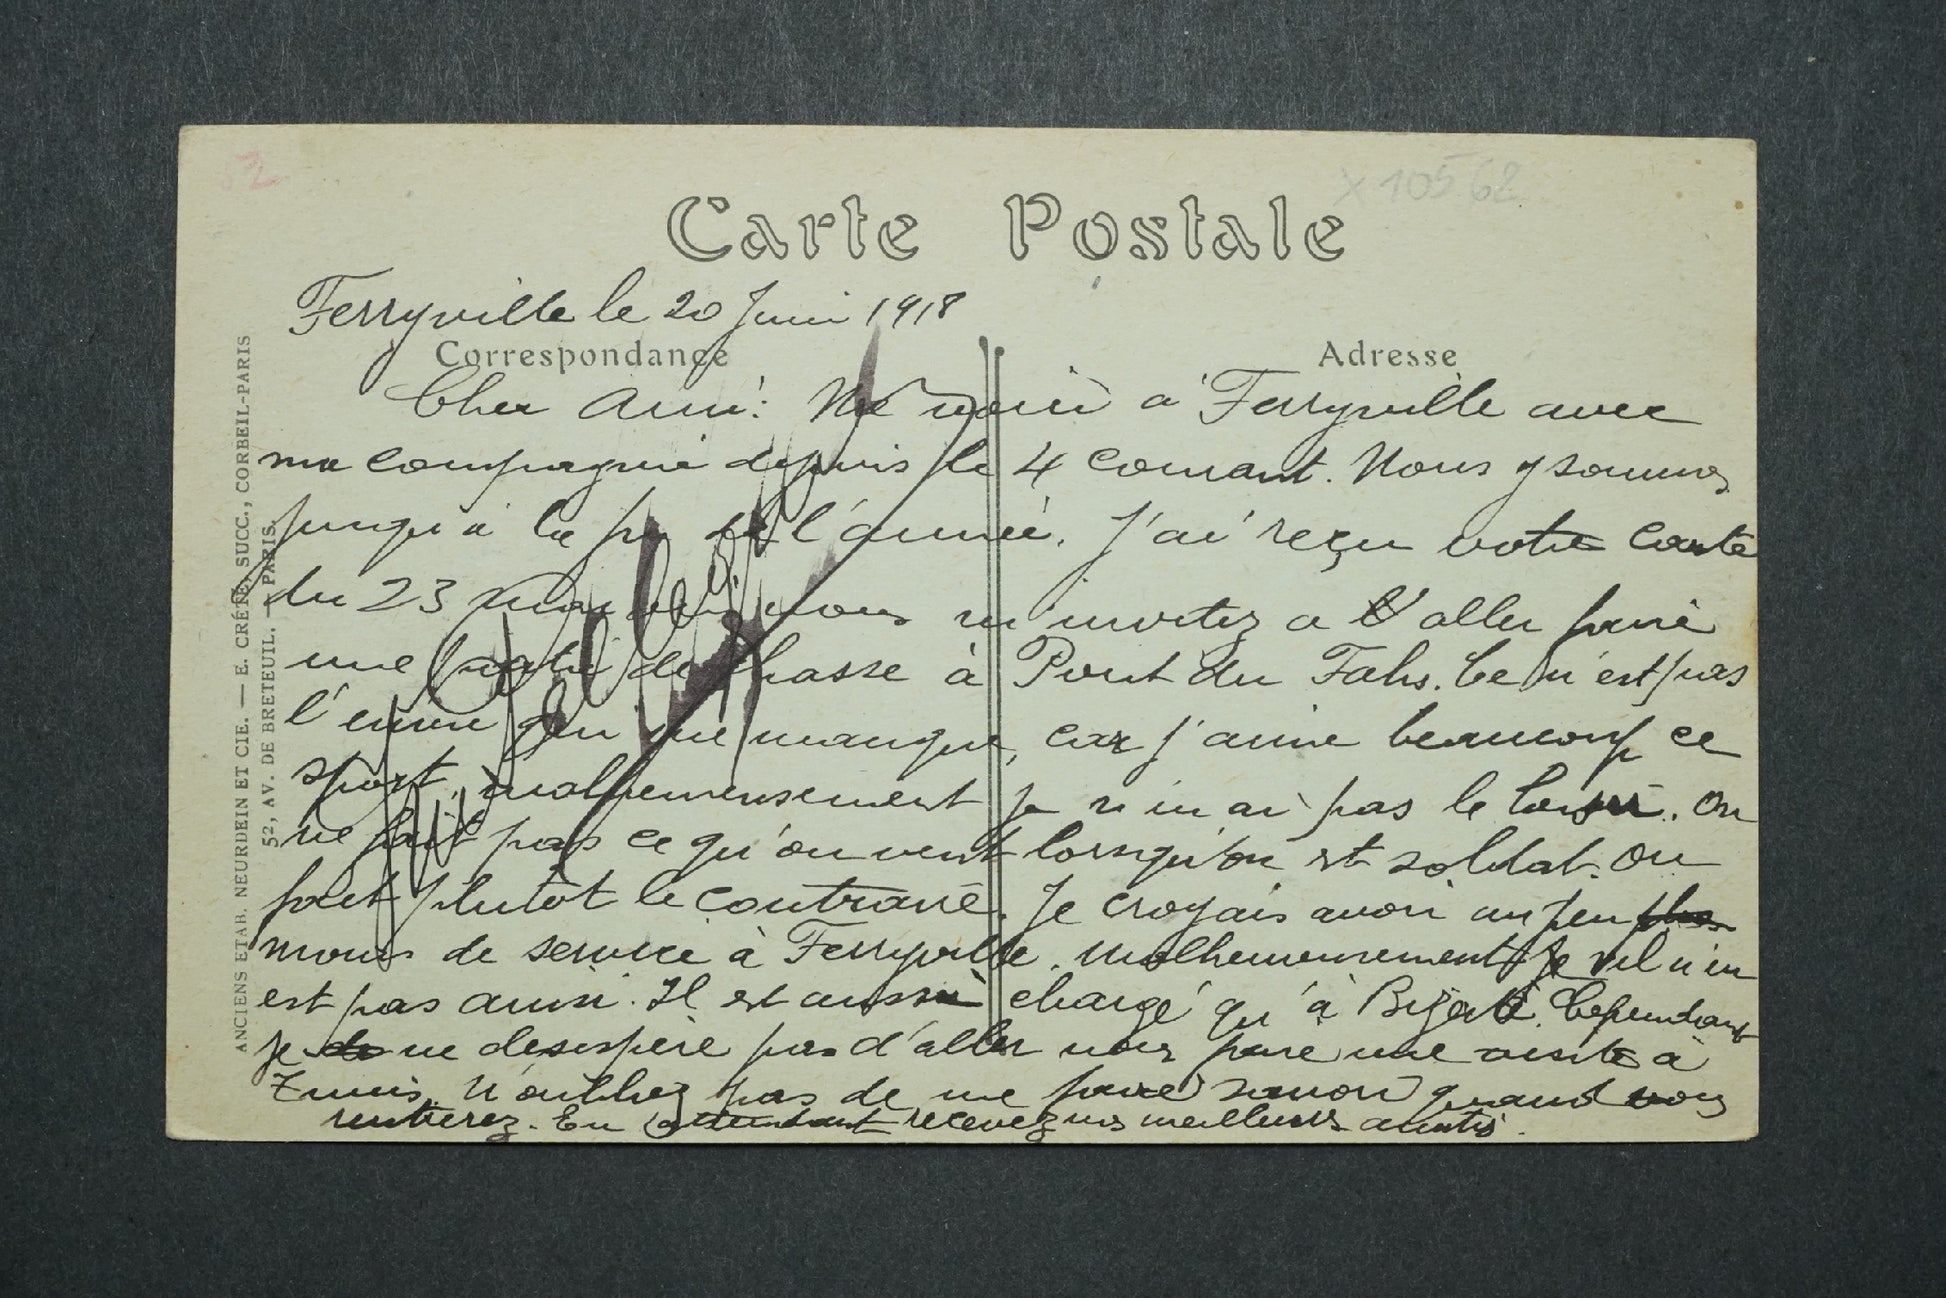 52
X 10562
Carte Postale
Ferryville le 20 Juin 1918
Correspondance
Adresse
Cher Ami: Me voici à Ferryville avec
ma compagnie depuis le 4 courant. Nous y sommes
jusqu'à la fin de l'année. J'ai reçu votre carte
du 23 mai vous m'invitez a aller faire
une partie de chasse à Pont du Fahs. Ce n'est pas
l'envie qui me manque, car j'aime beaucoup ce
sport, malheureusement je n'en ai pas le loisir. On
ne fait pas ce qu'on veut lorsqu'on est soldat. On
fait plutôt le contraire. Je croyais avoir un peu plus
moins de service à Ferryville. Malheureusement il n'en
est pas ainsi. Il est aussi chargé qu'à Bizerte. Cependant
je de ne desespère pas d'aller vous faire une visite à
Tunis. N'oubliez pas de me faire savoir quand vous
rentrerez. En attendant recevez mes meilleures amitiés.
ANCIENS ETAB. NEURDEIN ET CIE. — E. CRÉTÉ, SUCC., CORBEIL-PARIS
52, AV. DE BRETEUIL. — PARIS.